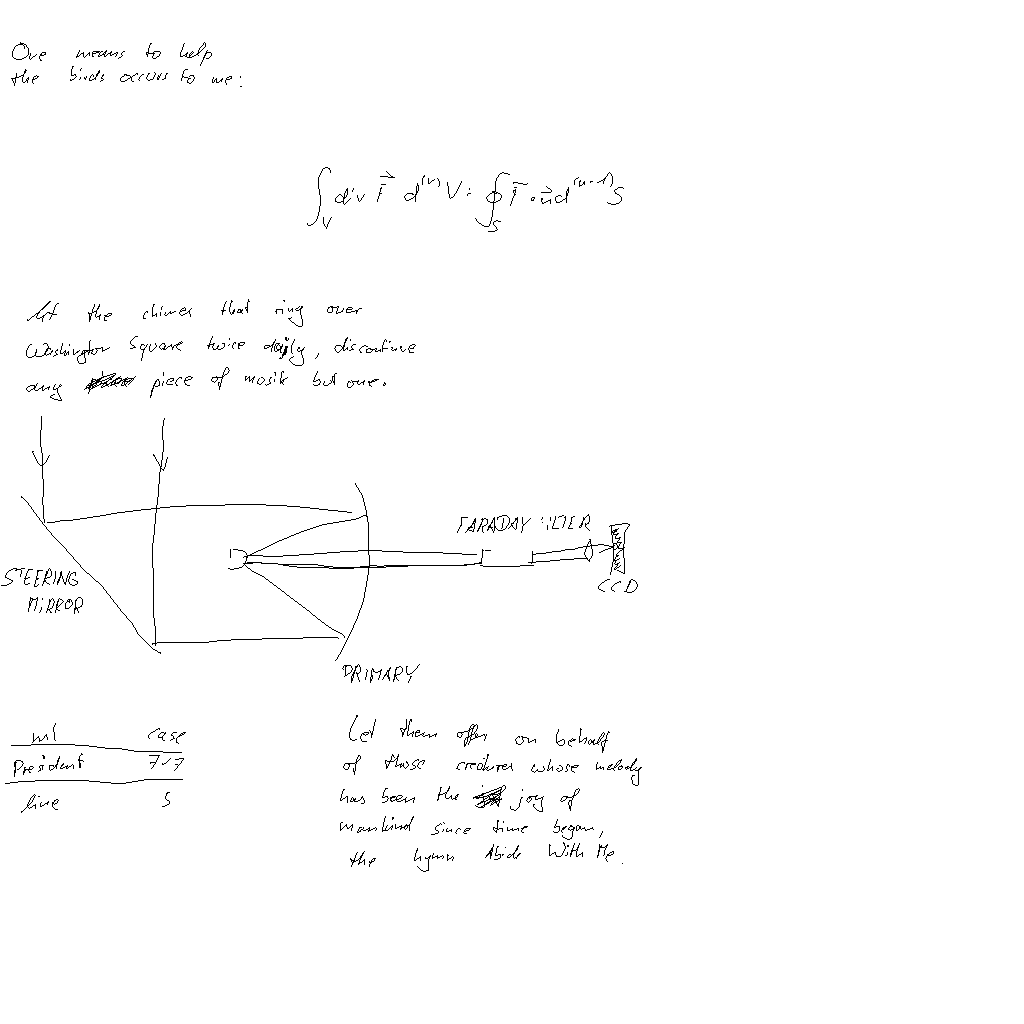 One means to help
the birds occurs to me:
∫_V div F⃗ d^(n) V = ∮_S F⃗ · n⃗ d^(n-1) S
let the chimes that ring over
Washington Square twice daily, discontinue
any piece of mosik but one.
FARADAY FILTER
CCD
STEERING
MIRROR
PRIMARY
ml case
President
line 5
Let them offer on behalf
of those creatures whose melody
has been the joy of
mankind since time began,
the hymn Abide With Me.